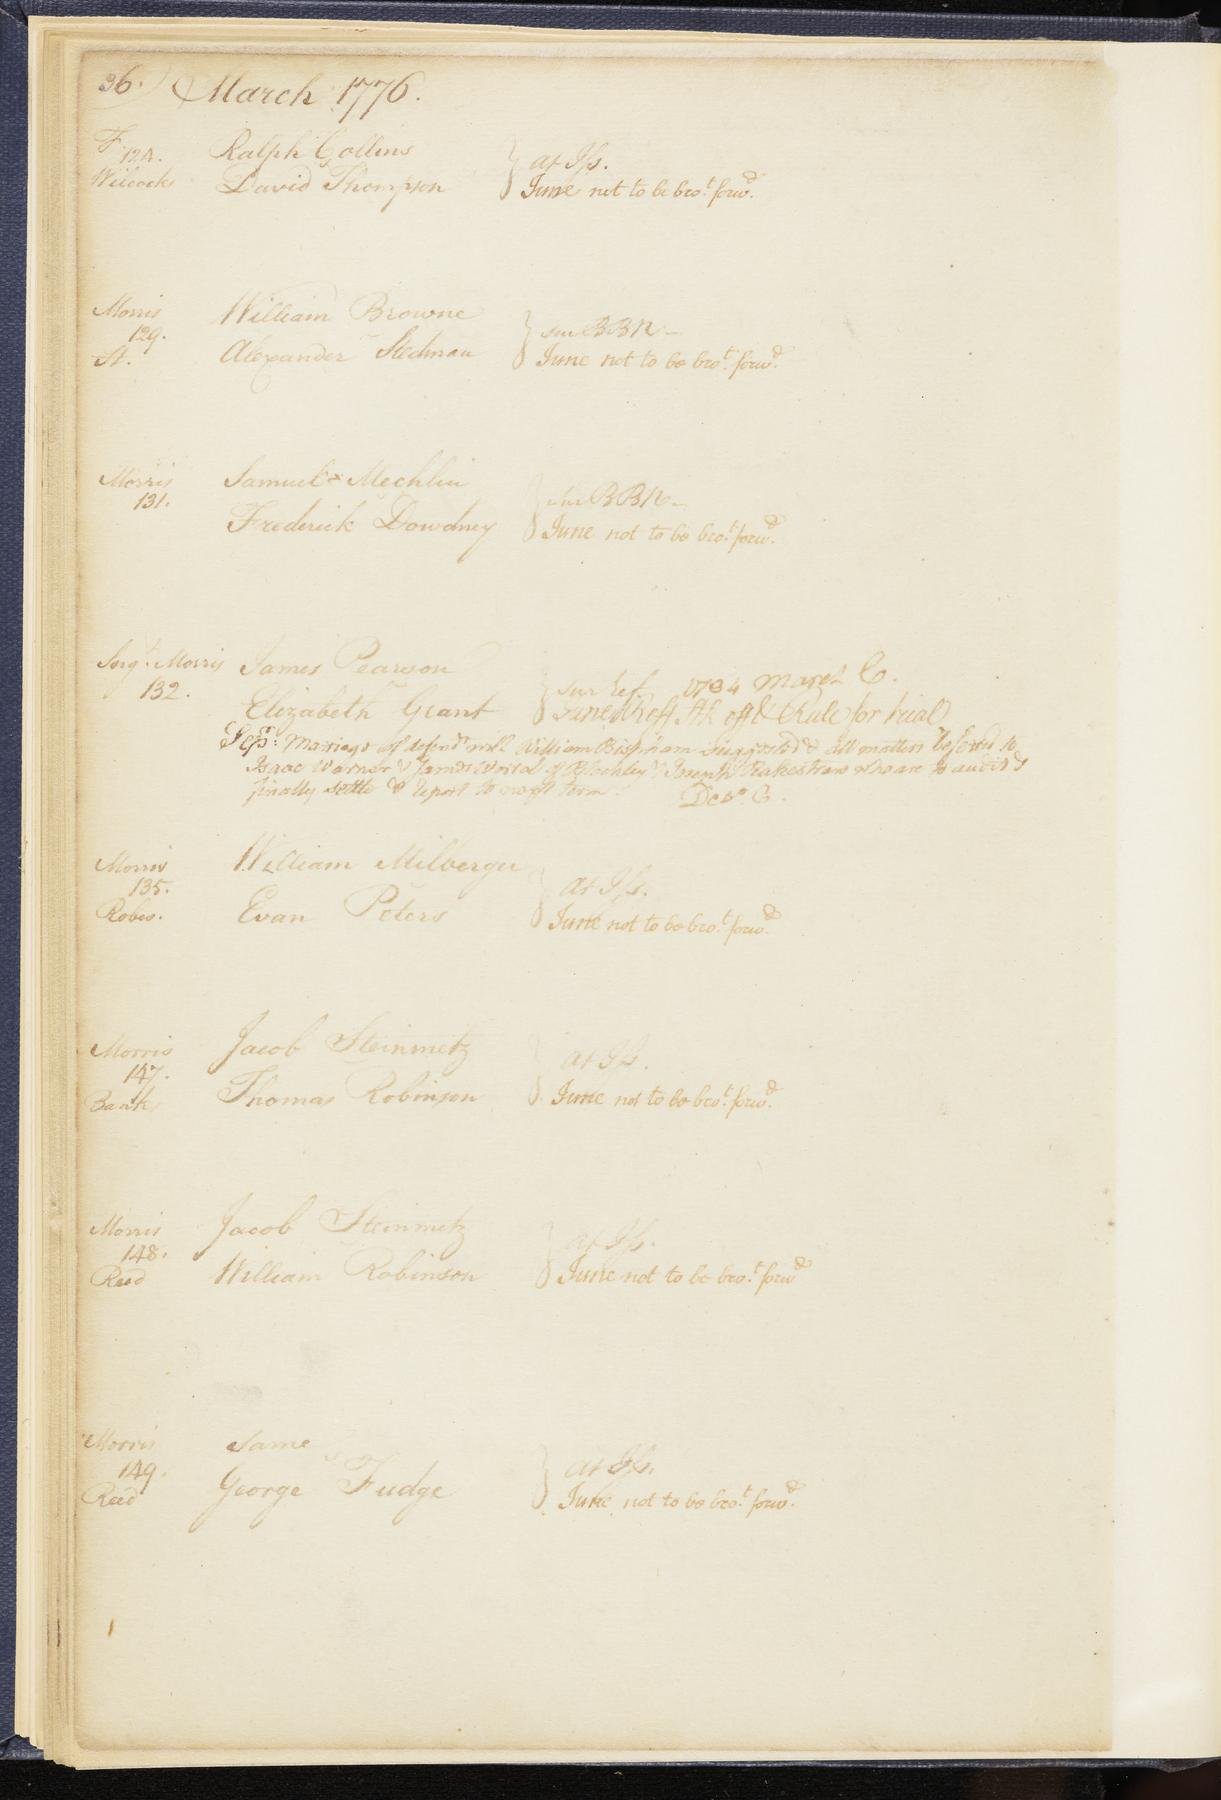 36. March 1776.
F 124. Ralph Collins } at Iss.
Wilcocks David Thompson } June not to be bro.t forw.d
Morris William Browne } sur BBN
129.
St. Alexander Stedman } June not to be bro.t forw.d
Morris Samuel Mechlin } sur BBN
131.
Frederick Dowdney } June not to be bro.t forw.d
Serg.t Morris James Pearson } sur ref. 1784 March C.
132. Elizabeth Grant } June Rule for trial
Sep.r Marriage of defend.t with William Bispham suggested & all matters referred to
Isaac Warner & James of Blockley & Joseph Rakestraw who are to audit &
finally settle & report to next term. Dec.r C.
Morris William Milberger } at Iss.
135.
Robes. Evan Peters } June not to be bro.t forw.d
Morris Jacob Steinmetz } at Iss.
147.
Bank Thomas Robinson } June not to be bro.t forw.d
Morris Jacob Steinmetz } at Iss.
148.
Reed William Robinson } June not to be bro.t forw.d
Morris Same } at Iss.
149.
Reed George Fudge } June not to be bro.t forw.d